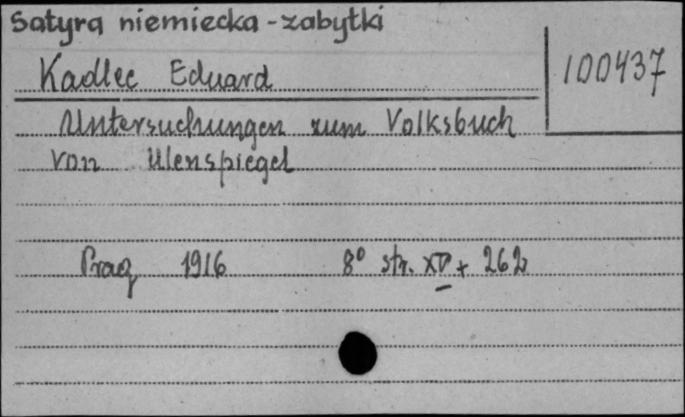 Satyra niemiecka - zabytki
Kadlec Eduard
100437
Untersuchungen zum Volksbuch
von Ulenspiegel
Prag 1916 8° str. XV + 262